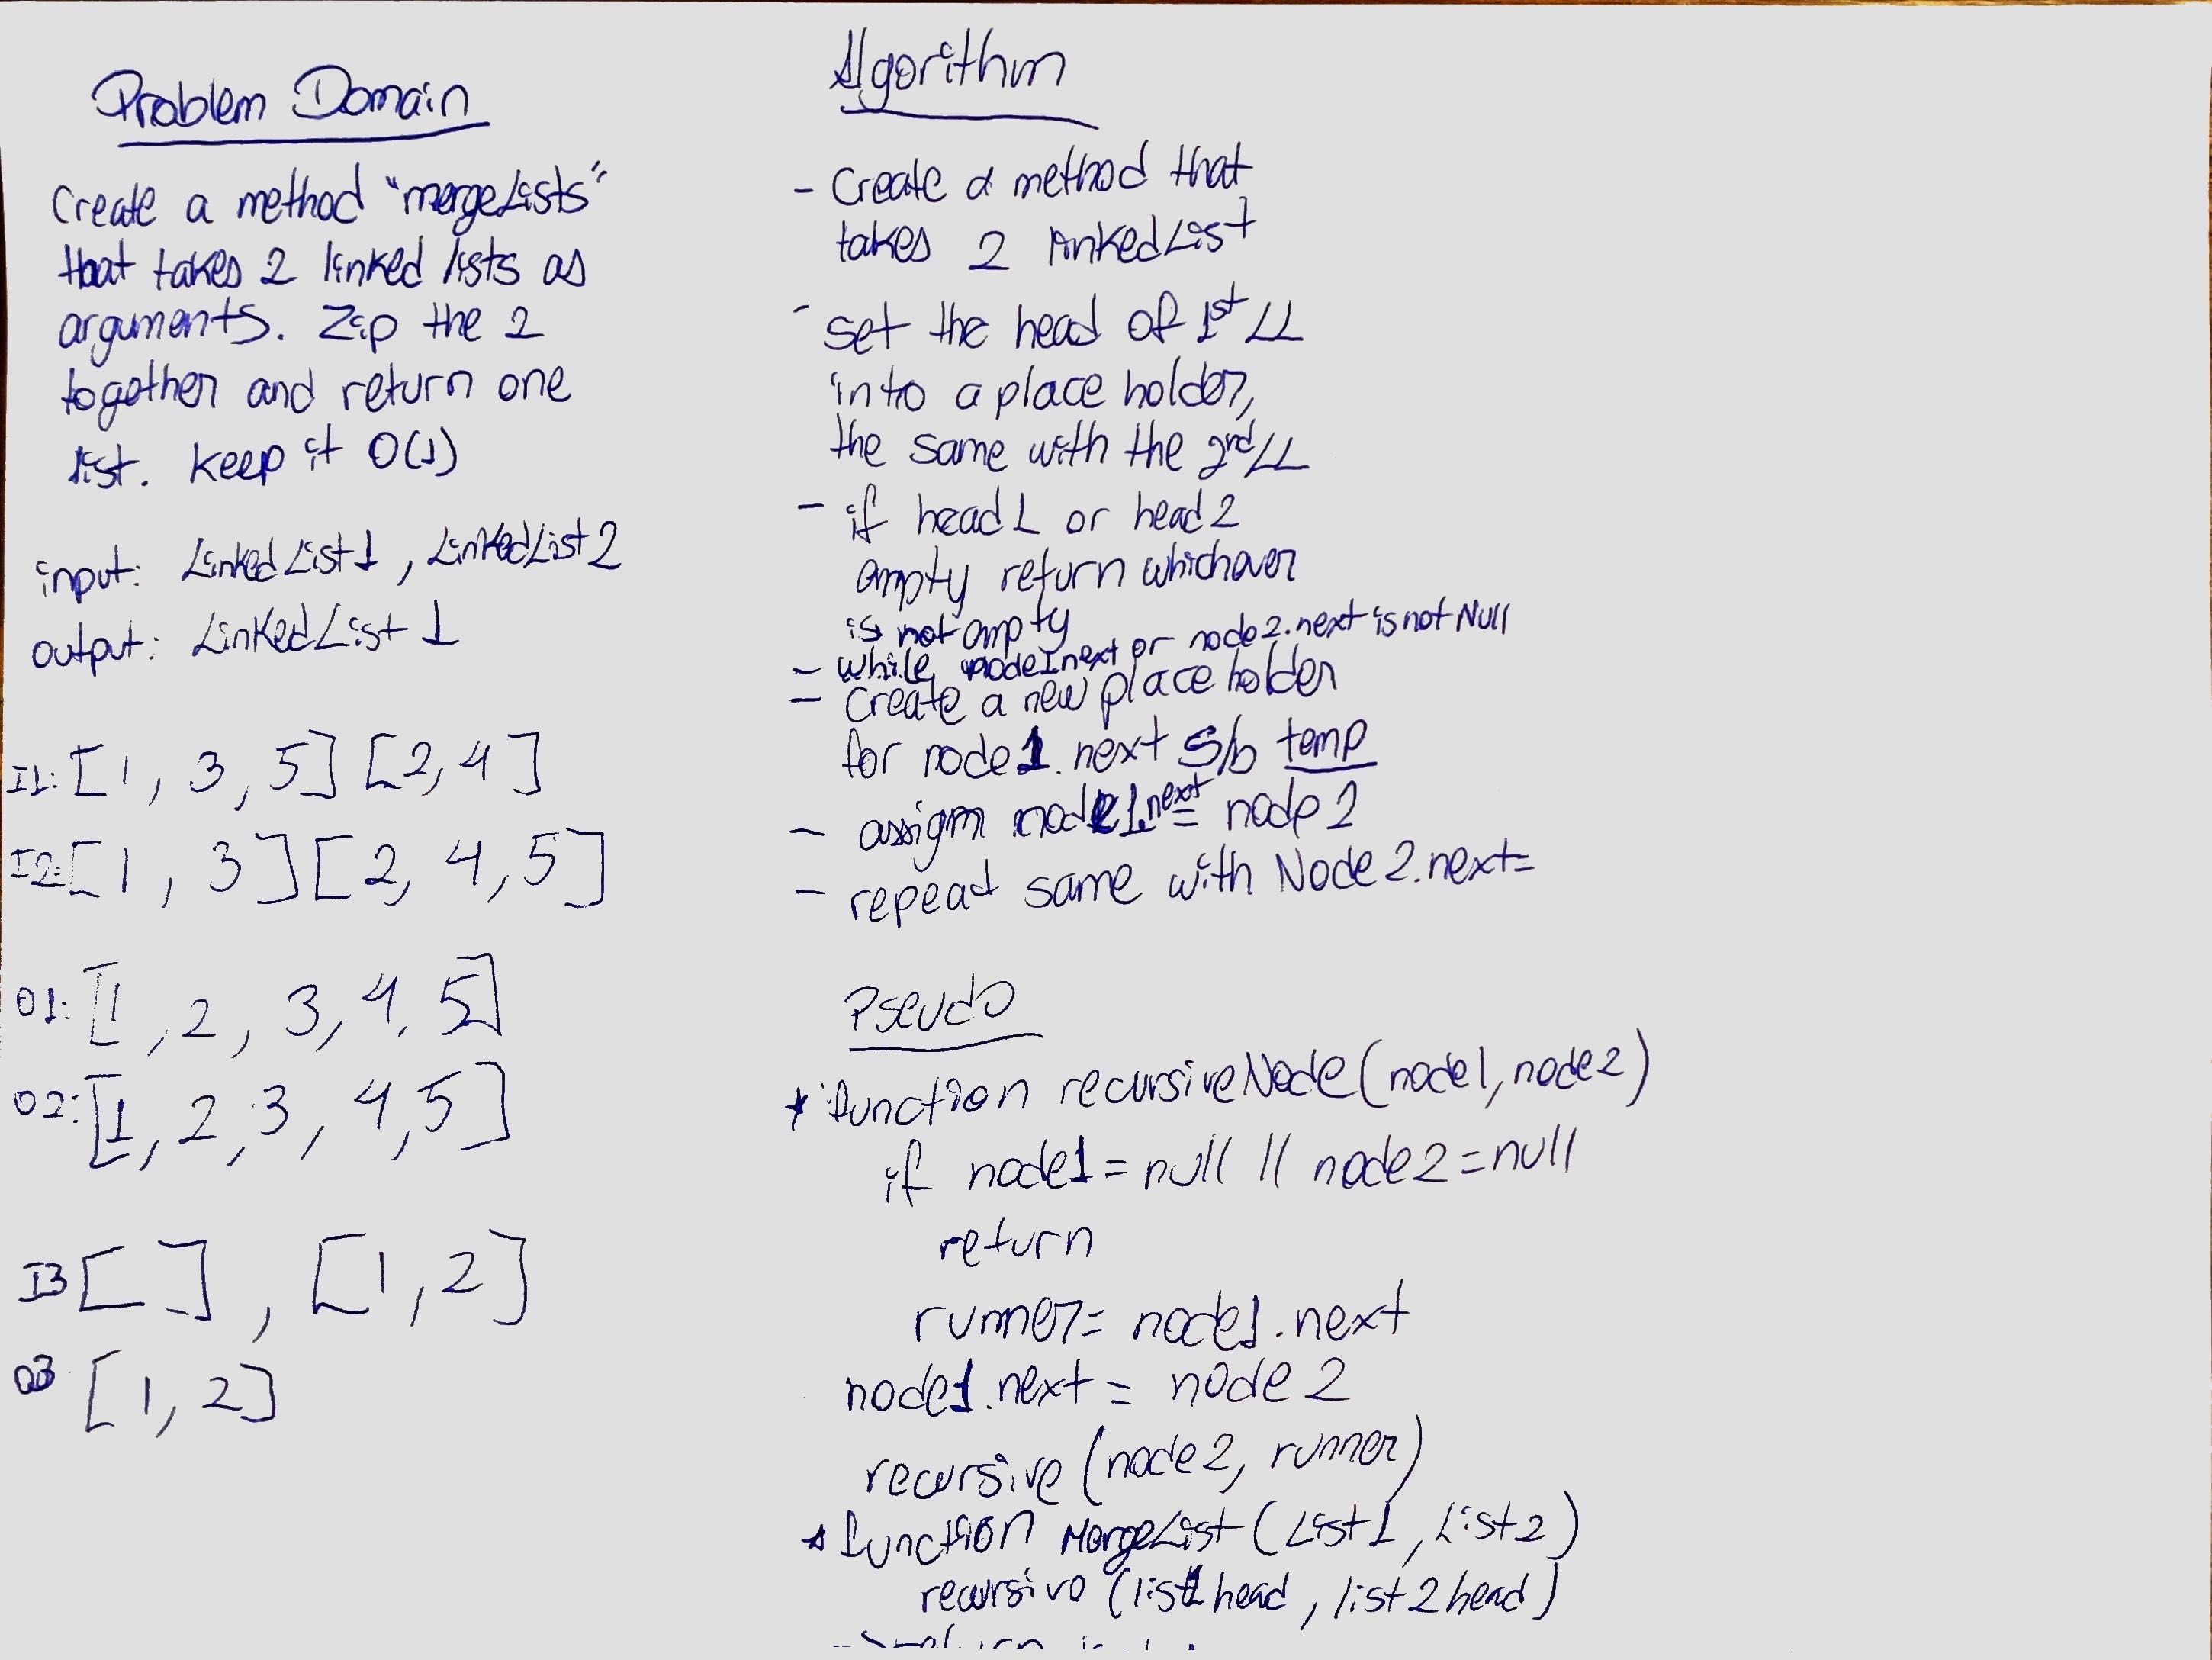 Problem Domain
Create a method "mergeLists"
that takes 2 linked lists as
arguments. Zip the 2
together and return one
list. Keep it O(1)
input: LinkedList1, LinkedList2
output: LinkedList1
I1: [1, 3, 5] [2, 4]
I2: [1, 3] [2, 4, 5]
O1: [1, 2, 3, 4, 5]
O2: [1, 2, 3, 4, 5]
I3 [ ], [1, 2]
O3 [1, 2]
Algorithm
- Create a method that
takes 2 linkedList
- set the head of 1st LL
into a place holder,
the same with the 2nd LL
- if head 1 or head 2
empty return whichever
is not empty
- while node1.next or node2.next is not Null
- Create a new place holder
for node1.next s/b temp
- assign node1.next = node 2
- repeat same with Node 2.next=
Pseudo
* function recursiveNode(node1, node2)
if node1 = null || node2 = null
return
runner = node1.next
node1.next = node 2
recursive (node2, runner)
* function MergeList (List1, List2)
recursive (list1 head, list2 head)